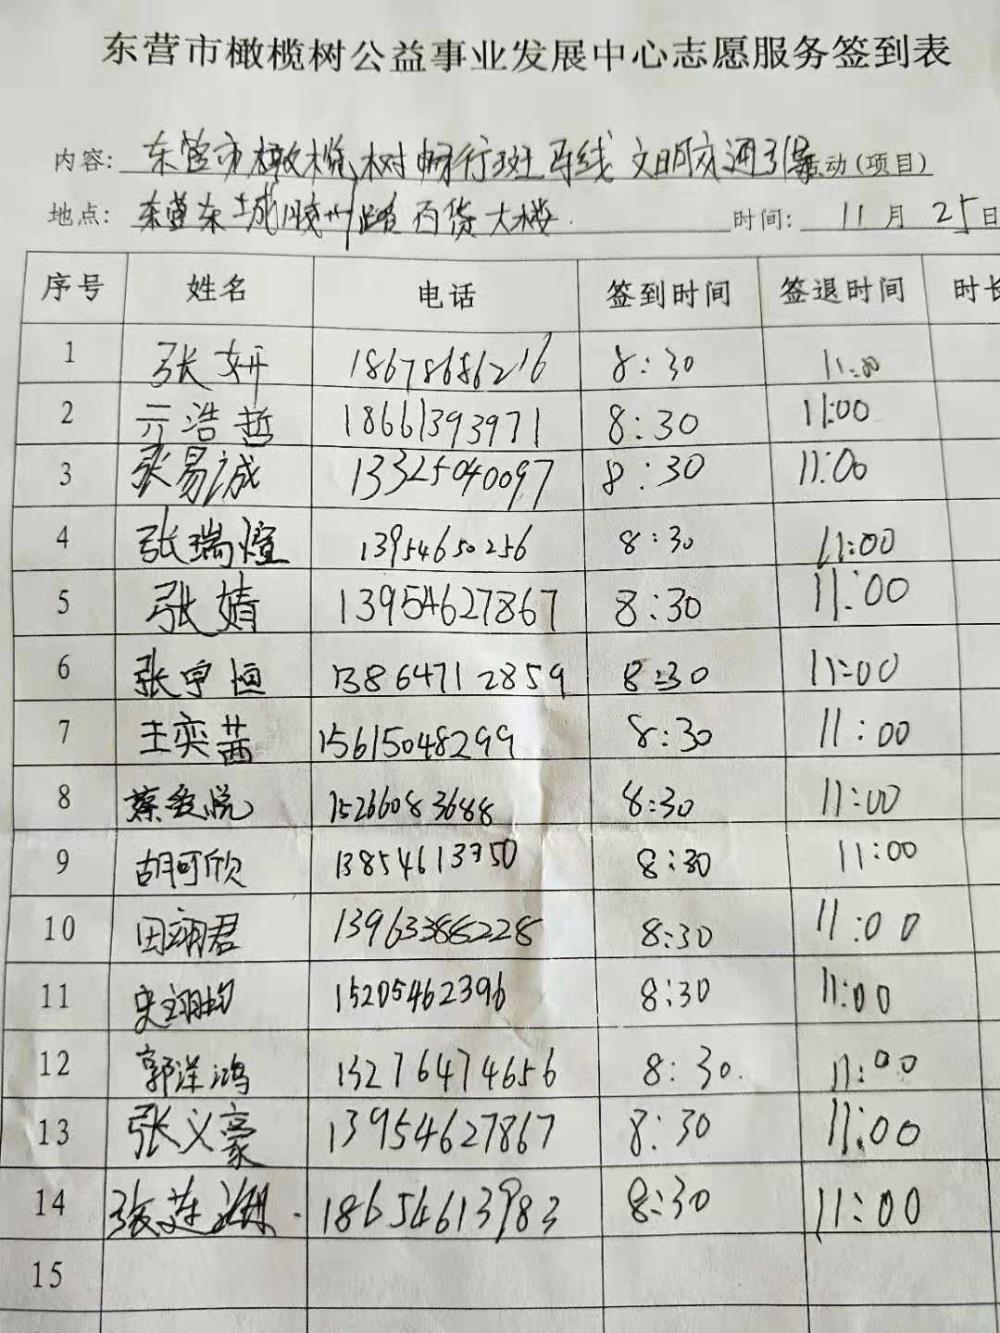 东营市橄榄树公益事业发展中心志愿服务签到表
内容: 东营市橄榄树畅行斑马线 文明交通引导活动(项目)
地点: 东营东城胶州路百货大楼 时间: 11月25日
序号 姓名 电话 签到时间 签退时间 时长
1 张妍 18678686216 8:30 11:00
2 亓浩哲 18661393971 8:30 11:00
3 张易诚 13325040097 8:30 11:00
4 张瑞煊 13954650256 8:30 11:00
5 张婧 13954627867 8:30 11:00
6 张宇恒 13864712859 8:30 11:00
7 王奕茜 15615048299 8:30 11:00
8 15266083688 8:30 11:00
9 胡可欣 13854613750 8:30 11:00
10 田翊君 13963386228 8:30 11:00
11 15205462396 8:30 11:00
12 郭洋鸿 13276474656 8:30. 11:00
13 张义豪 13954627867 8:30 11:00
14 18654613983 8:30 11:00
15